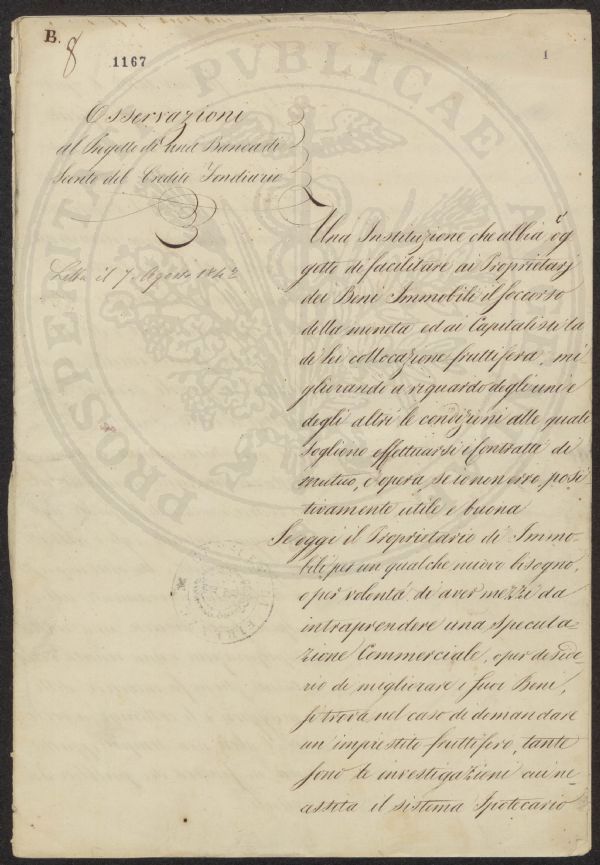 B.
8
1167
1
Osservazioni
al Progetto di una Banca di
Sconto del Credito Fondiario
Letta il 7. Agosto 1842
Una Instituzione che abbia og
getto di facilitare ai Proprietarj
dei Beni Immobili il soccorso
della moneta ed ai Capitalisti la
di lei collocazione fruttifera, mi
gliorando a riguardo degli uni e
degli altri le condizioni alle quali
sogliono effettuarsi i Contratti di
mutuo, è opera, se io non erro, posi
tivamente utile e buona
Se oggi il Proprietario di Immo-
bili per un qualche nuovo bisogno,
o per volontà di aver mezzi da
intraprendere una specula
zione Commerciale, o per deside
rio di migliorare i suoi Beni,
si trova nel caso di domandare
un' imprestito fruttifero, tante
sono le investigazioni cui ne
assota il sistema Ipotecario
PROSPERITATI PUBLICAE AU